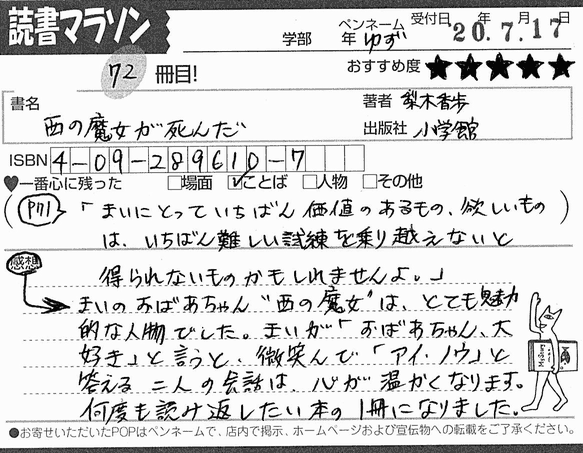 読書マラソン
学部 年 ペンネーム ゆず 受付日 20.年7.月17日
72 冊目!
おすすめ度 ★★★★★
書名 西の魔女が死んだ
著者 梨木香歩
出版社 小学館
ISBN 4-09-289610-7
♥一番心に残った □場面 ☑ことば □人物 □その他
(P71)「まいにとっていちばん価値のあるもの、欲しいもの
は、いちばん難しい試練を乗り越えないと
得られないものかもしれませんよ。」
感想
まいのおばあちゃん"西の魔女"は、とても魅動
的な人物でした。まいが「おばあちゃん、大
好き」と言うと、微笑んで「アイ・ノウ」と
答える二人の会話は、心が温かくなります。
何度も読み返したい本の1冊になりました。
●お寄せいただいたPOPはペンネームで、店内で掲示、ホームページおよび宣伝物への転載をご了承ください。